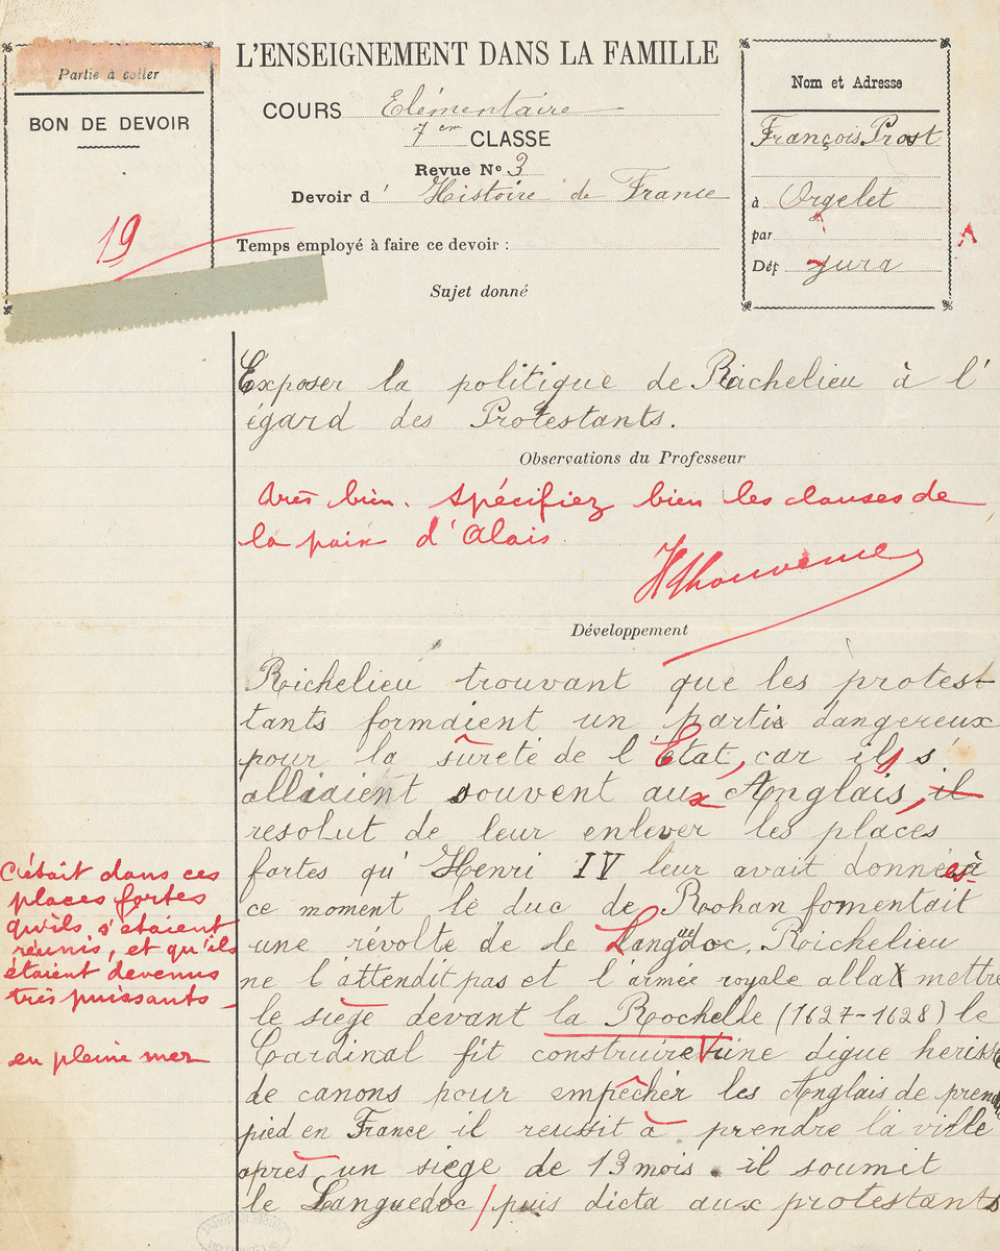 Partie à coller
BON DE DEVOIR
19
L'ENSEIGNEMENT DANS LA FAMILLE
COURS Elémentaire
7em CLASSE
Revue No 3
Devoir d' Histoire de France
Temps employé à faire ce devoir :
Nom et Adresse
François Prost
à Orgelet
par
Dép Jura
A
Sujet donné
Exposer la politique de Richelieu à l'
égard des Protestants.
Observations du Professeur
Très bien. Spécifiez bien les clauses de
la paix d'Alais.
Développement
Richelieu trouvant que les protest
tants formaient un partis dangereux
pour la sûreté de l'Etat, car ils s'
alliaient souvent aux Anglais, il
resolut de leur enlever les places
fortes qu'Henri IV leur avait données à
ce moment le duc de Rohan fomentait
une révolte de le Languedoc. Richelieu
ne l'attendit pas et l'armée royale alla mettre
le siège devant la Rochelle (1627-1628) le
Cardinal fit construire une digue herissée
de canons pour empêcher les Anglais de prendre
pied en France il reussit à prendre la ville
après un siege de 13 mois. il soumit
le Languedoc / puis dicta aux protestants
C'était dans ces
places fortes
qu'ils s'étaient
réunis, et qu'ils
étaient devenus
très puissants
en pleine mer